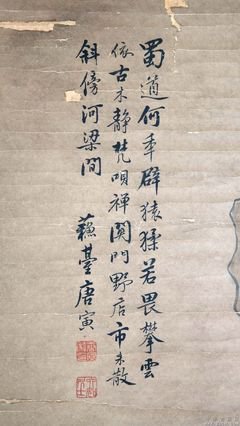 蜀道何年辟猿猱若畏攀雲
依古木静梵唄禅関門野店市未散
斜傍河梁間
蘇臺唐寅